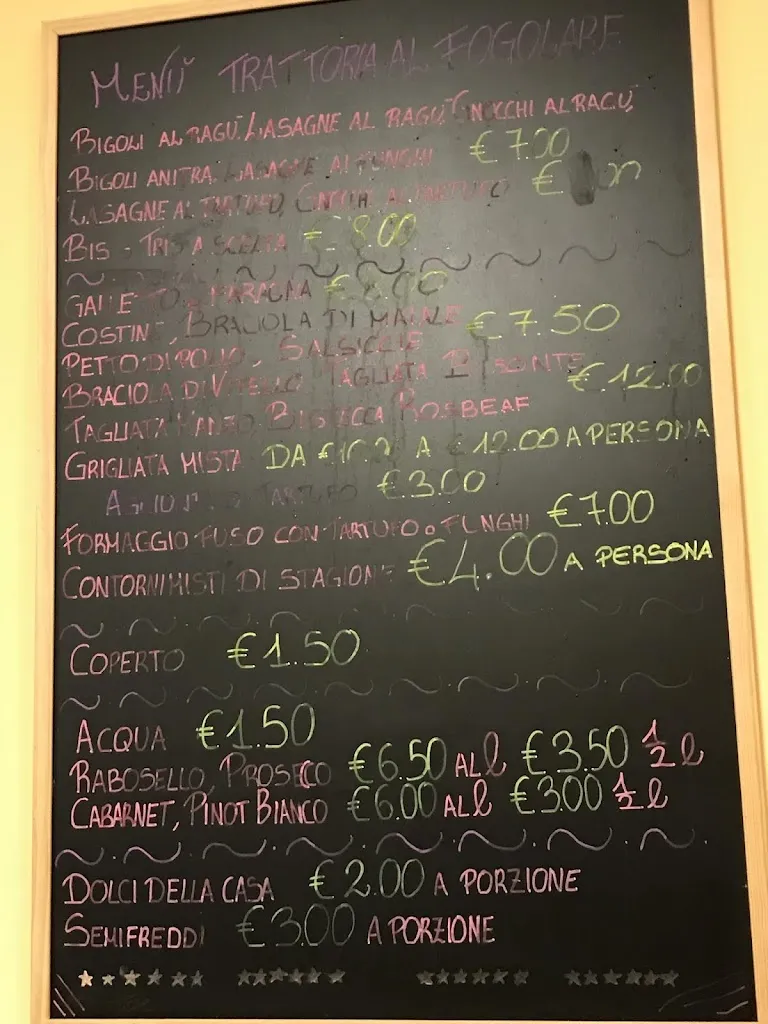 MENÙ TRATTORIA AL FOGOLARE
BIGOLI AL RAGÙ, LASAGNE AL RAGÙ, GNOCCHI AL RAGÙ,
€ 7.00
BIGOLI ANITRA, LASAGNE AI FUNGHI
LASAGNE AL TARTUFO, GNOCCHI AL TARTUFO €
BIS - TRIS A SCELTA € 8.00
GALLETTO FARAONA € 8.00
COSTINE, BRACIOLA DI MAIALE € 7.50
PETTO DI POLLO, SALSICCIE
BRACIOLA DI VITELLO TAGLIATA € 12.00
TAGLIATA MANZO BISTECCA ROSBEAF
GRIGLIATA MISTA DA A € 12.00 A PERSONA
DI TARTUFO € 3.00
FORMAGGIO FUSO CON TARTUFO O FUNGHI € 7.00
CONTORNI MISTI DI STAGIONE € 4.00 A PERSONA
COPERTO € 1.50
ACQUA € 1.50
RABOSELLO, PROSECO € 6.50 AL l € 3.50 1/2 l
CABARNET, PINOT BIANCO € 6.00 AL l € 3.00 1/2 l
DOLCI DELLA CASA € 2.00 A PORZIONE
SEMIFREDDI € 3.00 A PORZIONE